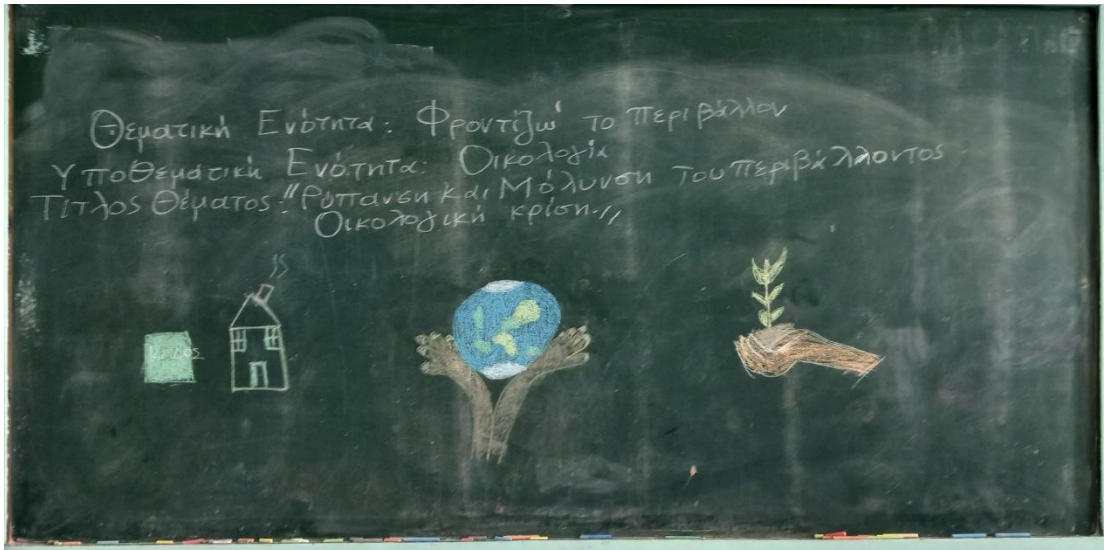 Θεματική Ενότητα: Φροντίζω το Περιβάλλον
Υποθεματική Ενότητα: Οικολογία
Τίτλος Θέματος: "Ρύπανση και Μόλυνση του περιβάλλοντος
Οικολογική κρίση."
ΚΑΔΟΣ